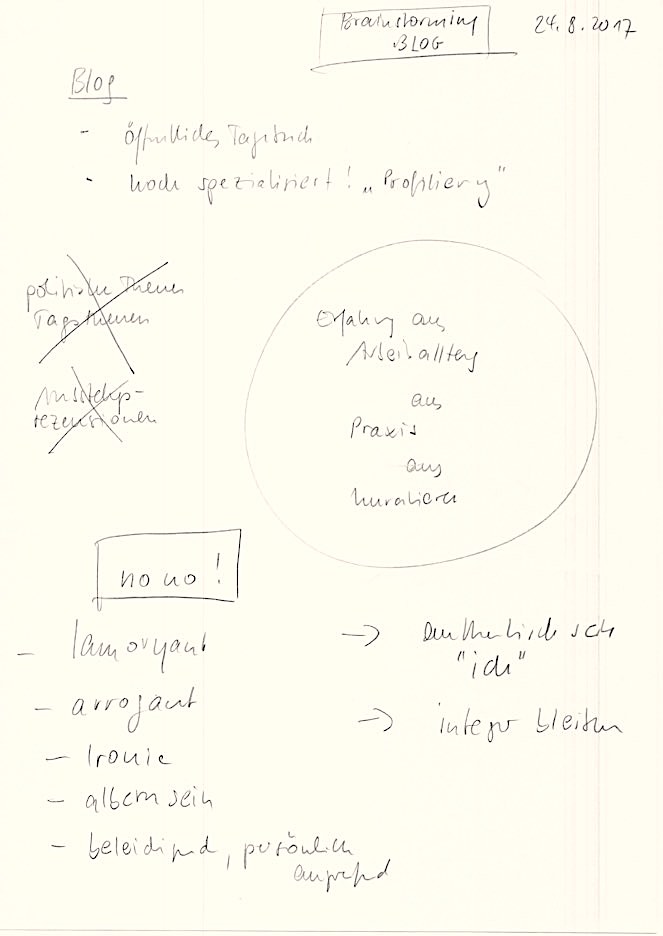 Brainstorming
BLOG
24.8.2017
Blog
- öffentliches Tagebuch
- hoch spezialisiert! „Profilierung"
politische Themen
Tagsthemen
Ausstellungs-
rezensionen
Erfahrung aus
Arbeitsalltag
aus
Praxis
aus
kuratieren
no no!
- lamoryant
- arrogant
- Ironie
- albern sein
- beleidigend, persönlich
angreifend
-> authentisch sein
"ich"
-> integer bleiben